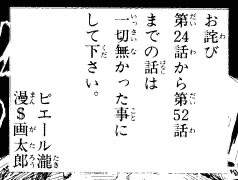 お詫び
第24話から第52話
までの話は
一切無かった事に
して下さい。
ピエール瀧
漫$画太郎